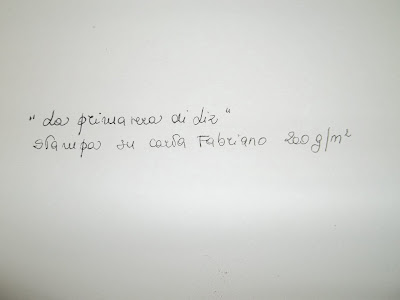 "La primavera di Liz"
stampa su carta Fabriano 200 g/m²